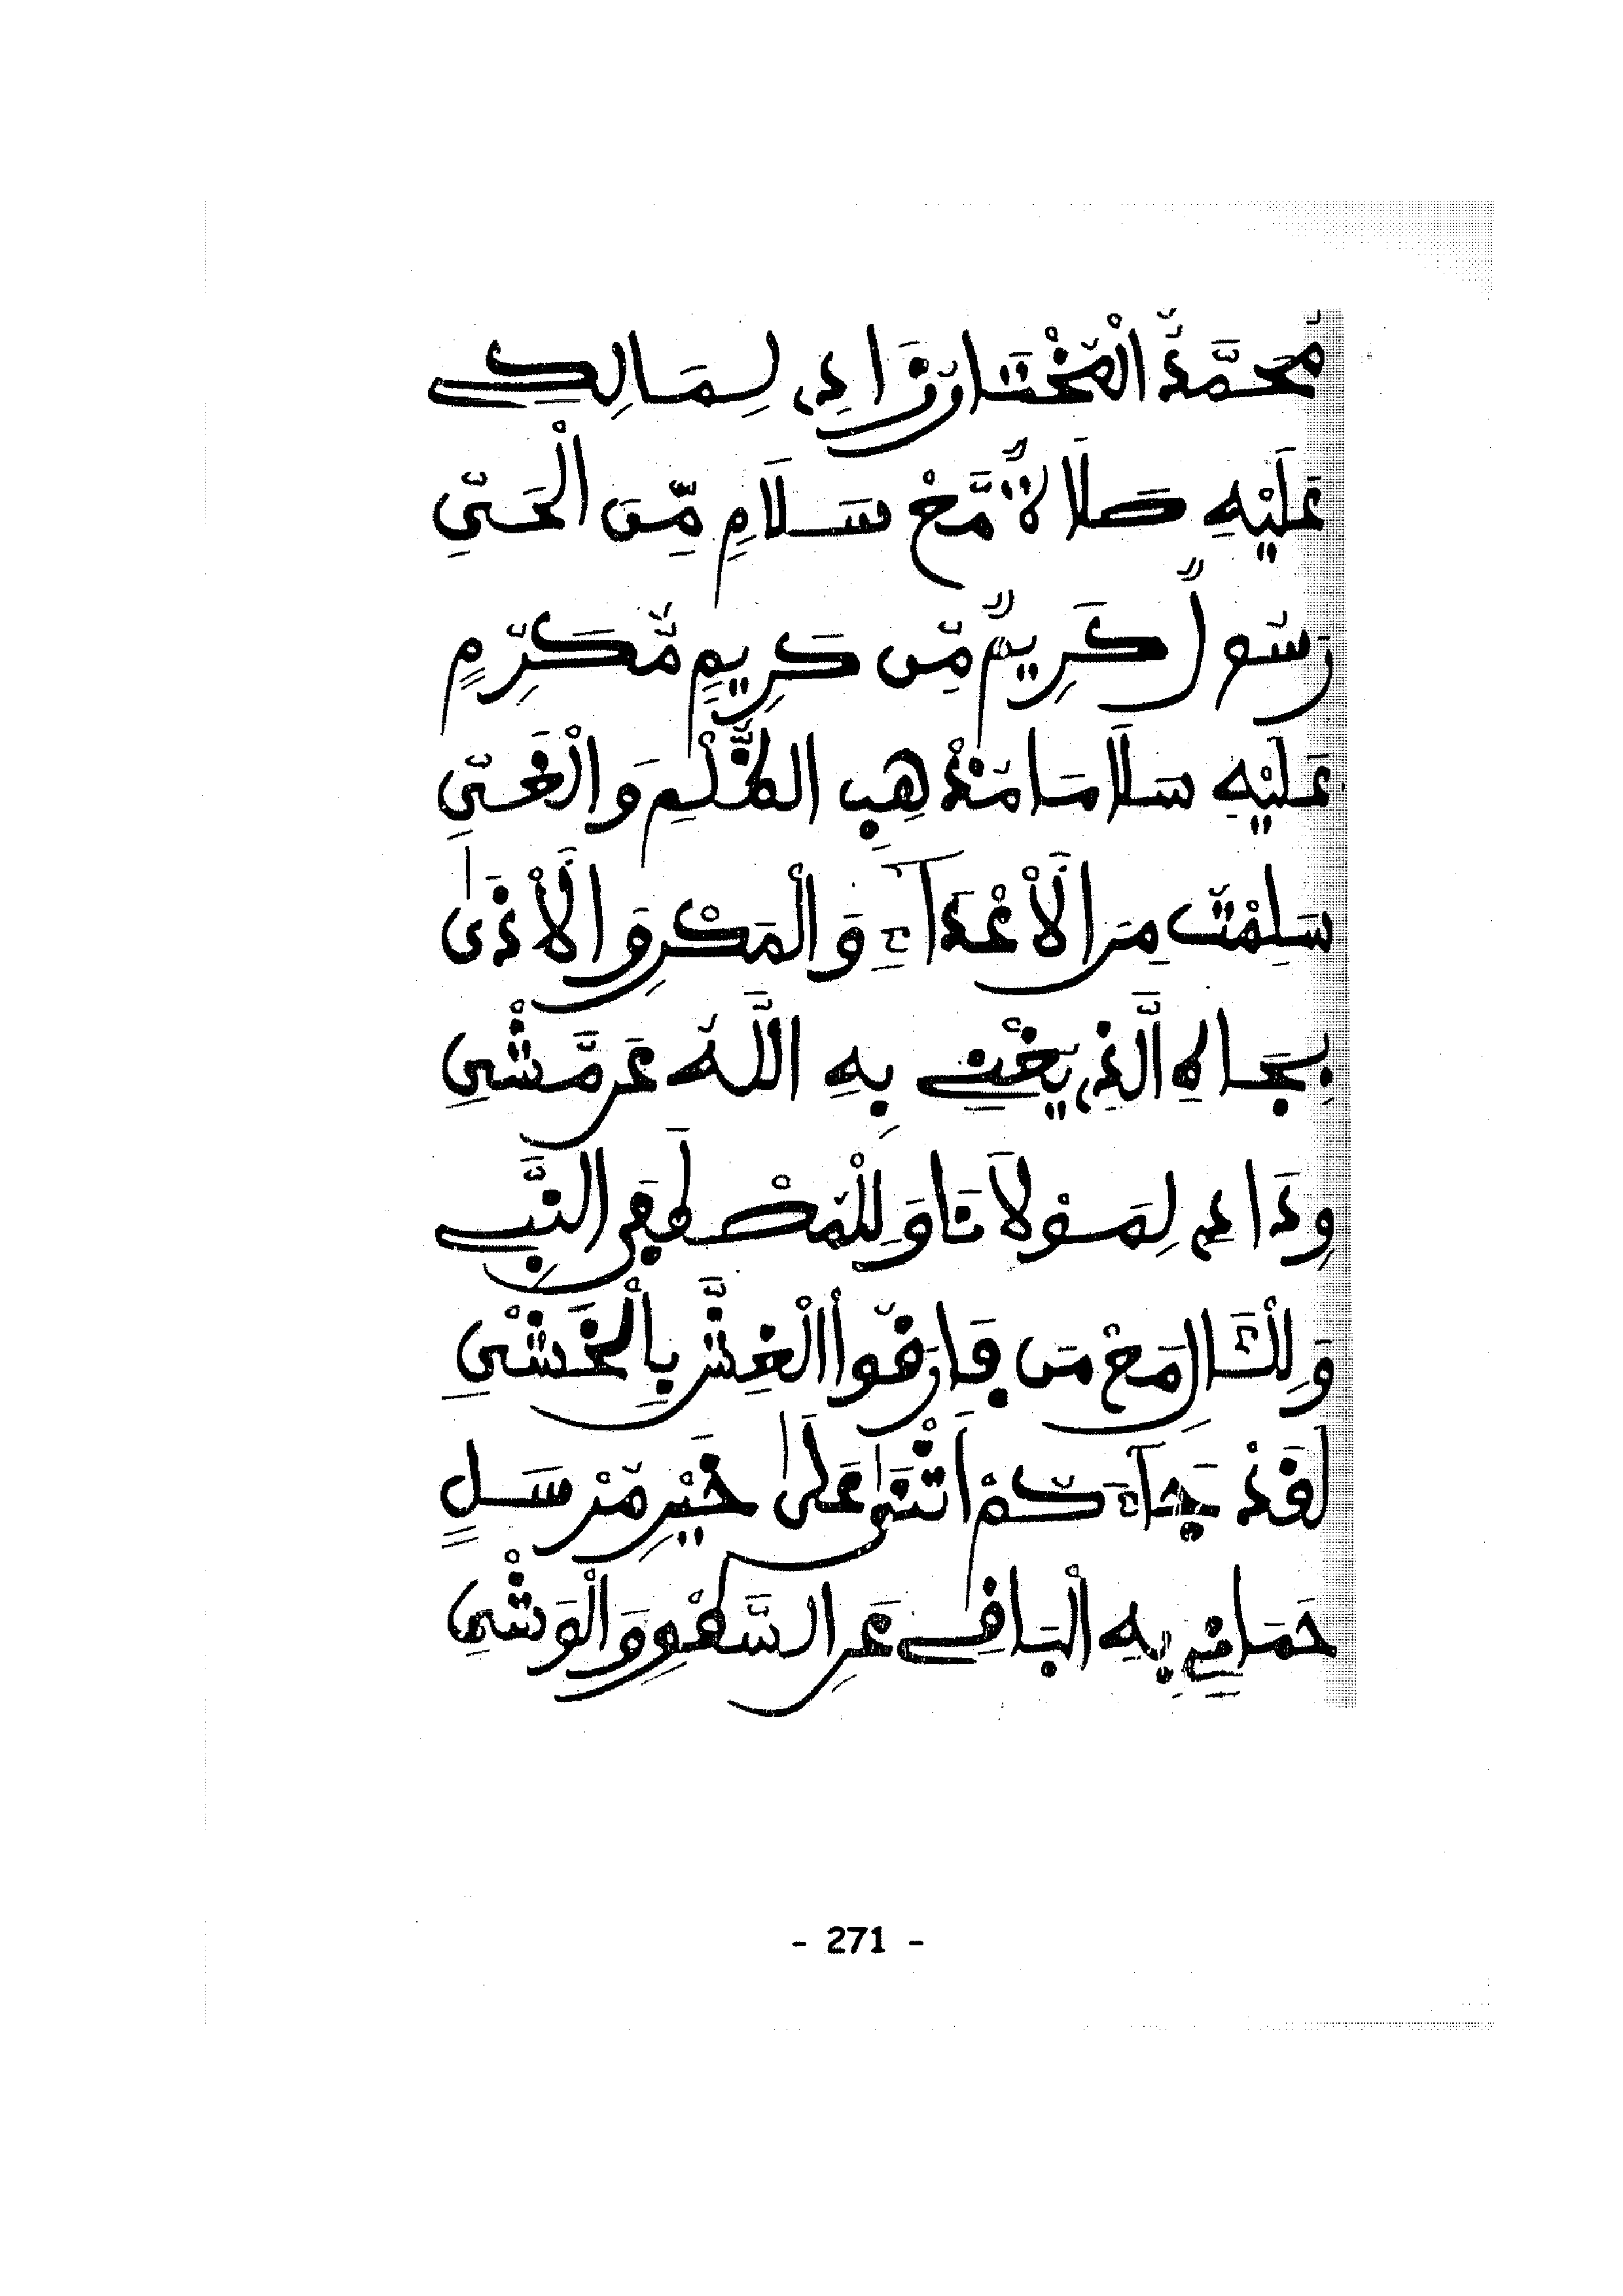 مُحَمَّدٌ الْمُخْتَارُ زَادِ، لِمَالِكِ
عَلَيْهِ صَلَاةٌ مَّعْ سَلَامٍ مِّنَ الْحَيِّ
رَسُولٌ كَرِيمٌ مِّن كَرِيمٍ مُّكَرِّمٍ
عَلَيْهِ سَلَامَا مُذْهِبِ الظُّلْمِ وَالْغَيِّ
سَلِمْتُ مِنَ الْأَعْدَآءِ وَالْمَكْرِ وَالْأَذَىٰ
بِجَاهِ الَّذِي يُغْنِي بِهِ اللَّهُ عَن مَّشْيِ
وِدَادِي لِمَوْلَانَا وَلِلْمُصْطَفَى النَّبِي
وَلِلْآلِ مَعْ مَن فَارَقُوا الْغِشَّ بِالْخَشْيِ
لَقَدْ جَآءَكُمْ أَثْنَىٰ عَلَىٰ خَيْرِ مُرْسَلٍ
حَمَانِي بِهِ الْبَاقِي عَنِ السَّهْوِ وَالْوَشْيِ
- 271 -